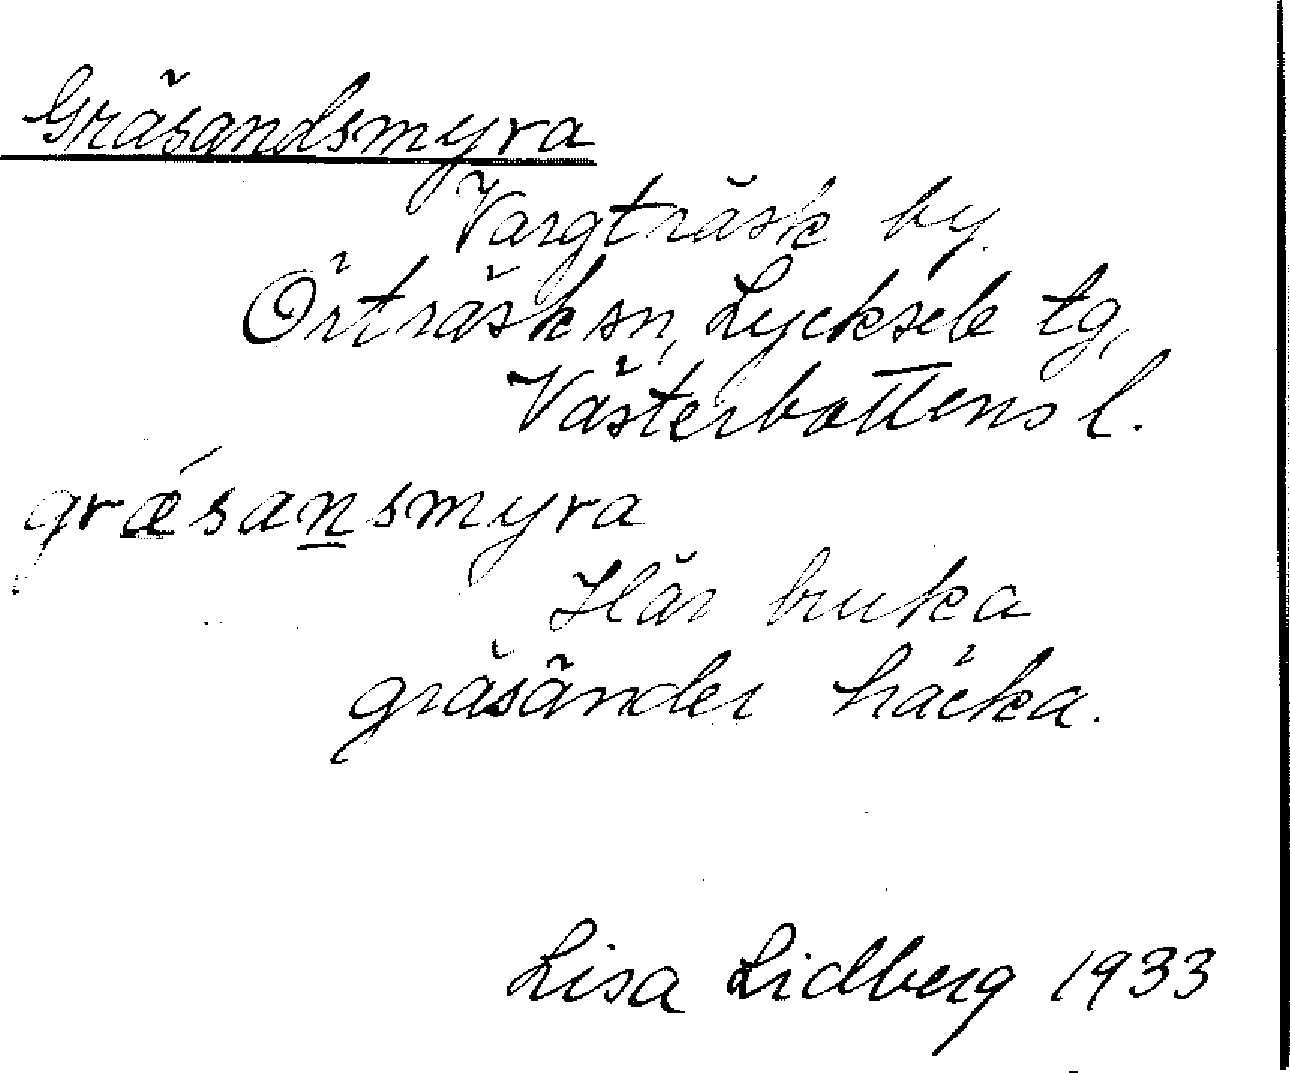 Gräsandsmyra
Vargträsk by.
Örträsk sn, Lycksele tg,
Västerbottens l.
grǽsansmyra
Här bruka
gräsänder häcka.
Lisa Lidberg 1933